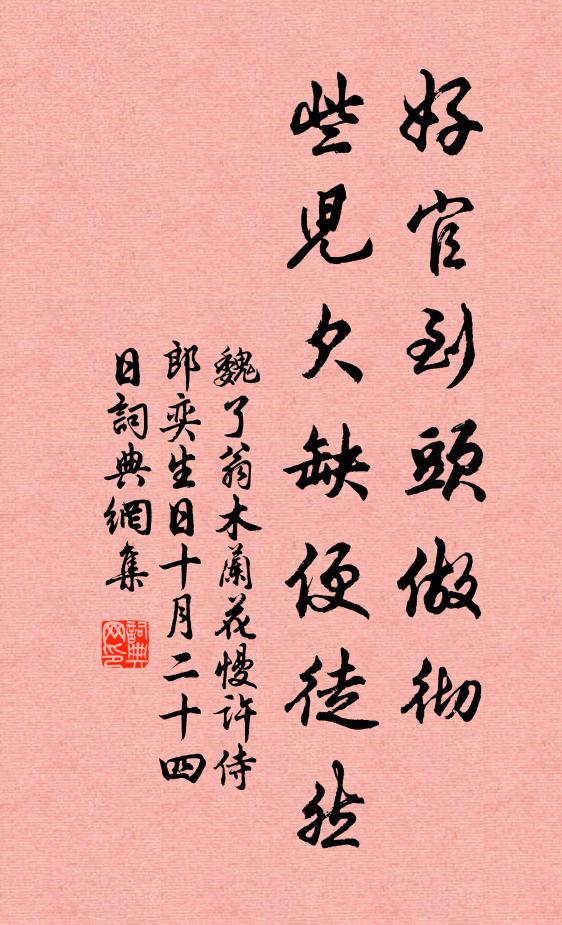 好官到頭做彻
些兒欠缺便徒然
魏了翁木蘭花慢許侍
郎奕生日十月二十四
日詞典網集
詞典网印